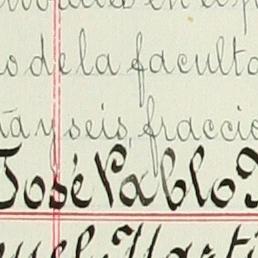 o de la faculta
ta y seis, fraccio
José Pablo
uel Marti